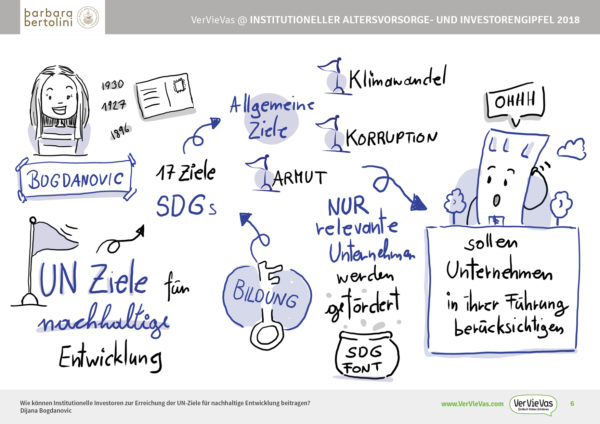 barbara
bertolini
VerVieVas @ INSTITUTIONELLER ALTERSVORSORGE- UND INVESTORENGIPFEL 2018
1930
1927
1896
BOGDANOVIC
17 Ziele
SDGs
Allgemeine
Ziele
Klimawandel
KORRUPTION
ARMUT
OHHH
UN Ziele für
nachhaltige
Entwicklung
BILDUNG
NUR
relevante
Unternehmen
werden
gefördert
SDG
FONT
sollen
Unternehmen
in ihrer Führung
berücksichtigen
Wie können Institutionelle Investoren zur Erreichung der UN-Ziele für nachhaltige Entwicklung beitragen?
Dijana Bogdanovic
www.VerVieVas.com
VerVieVas
6